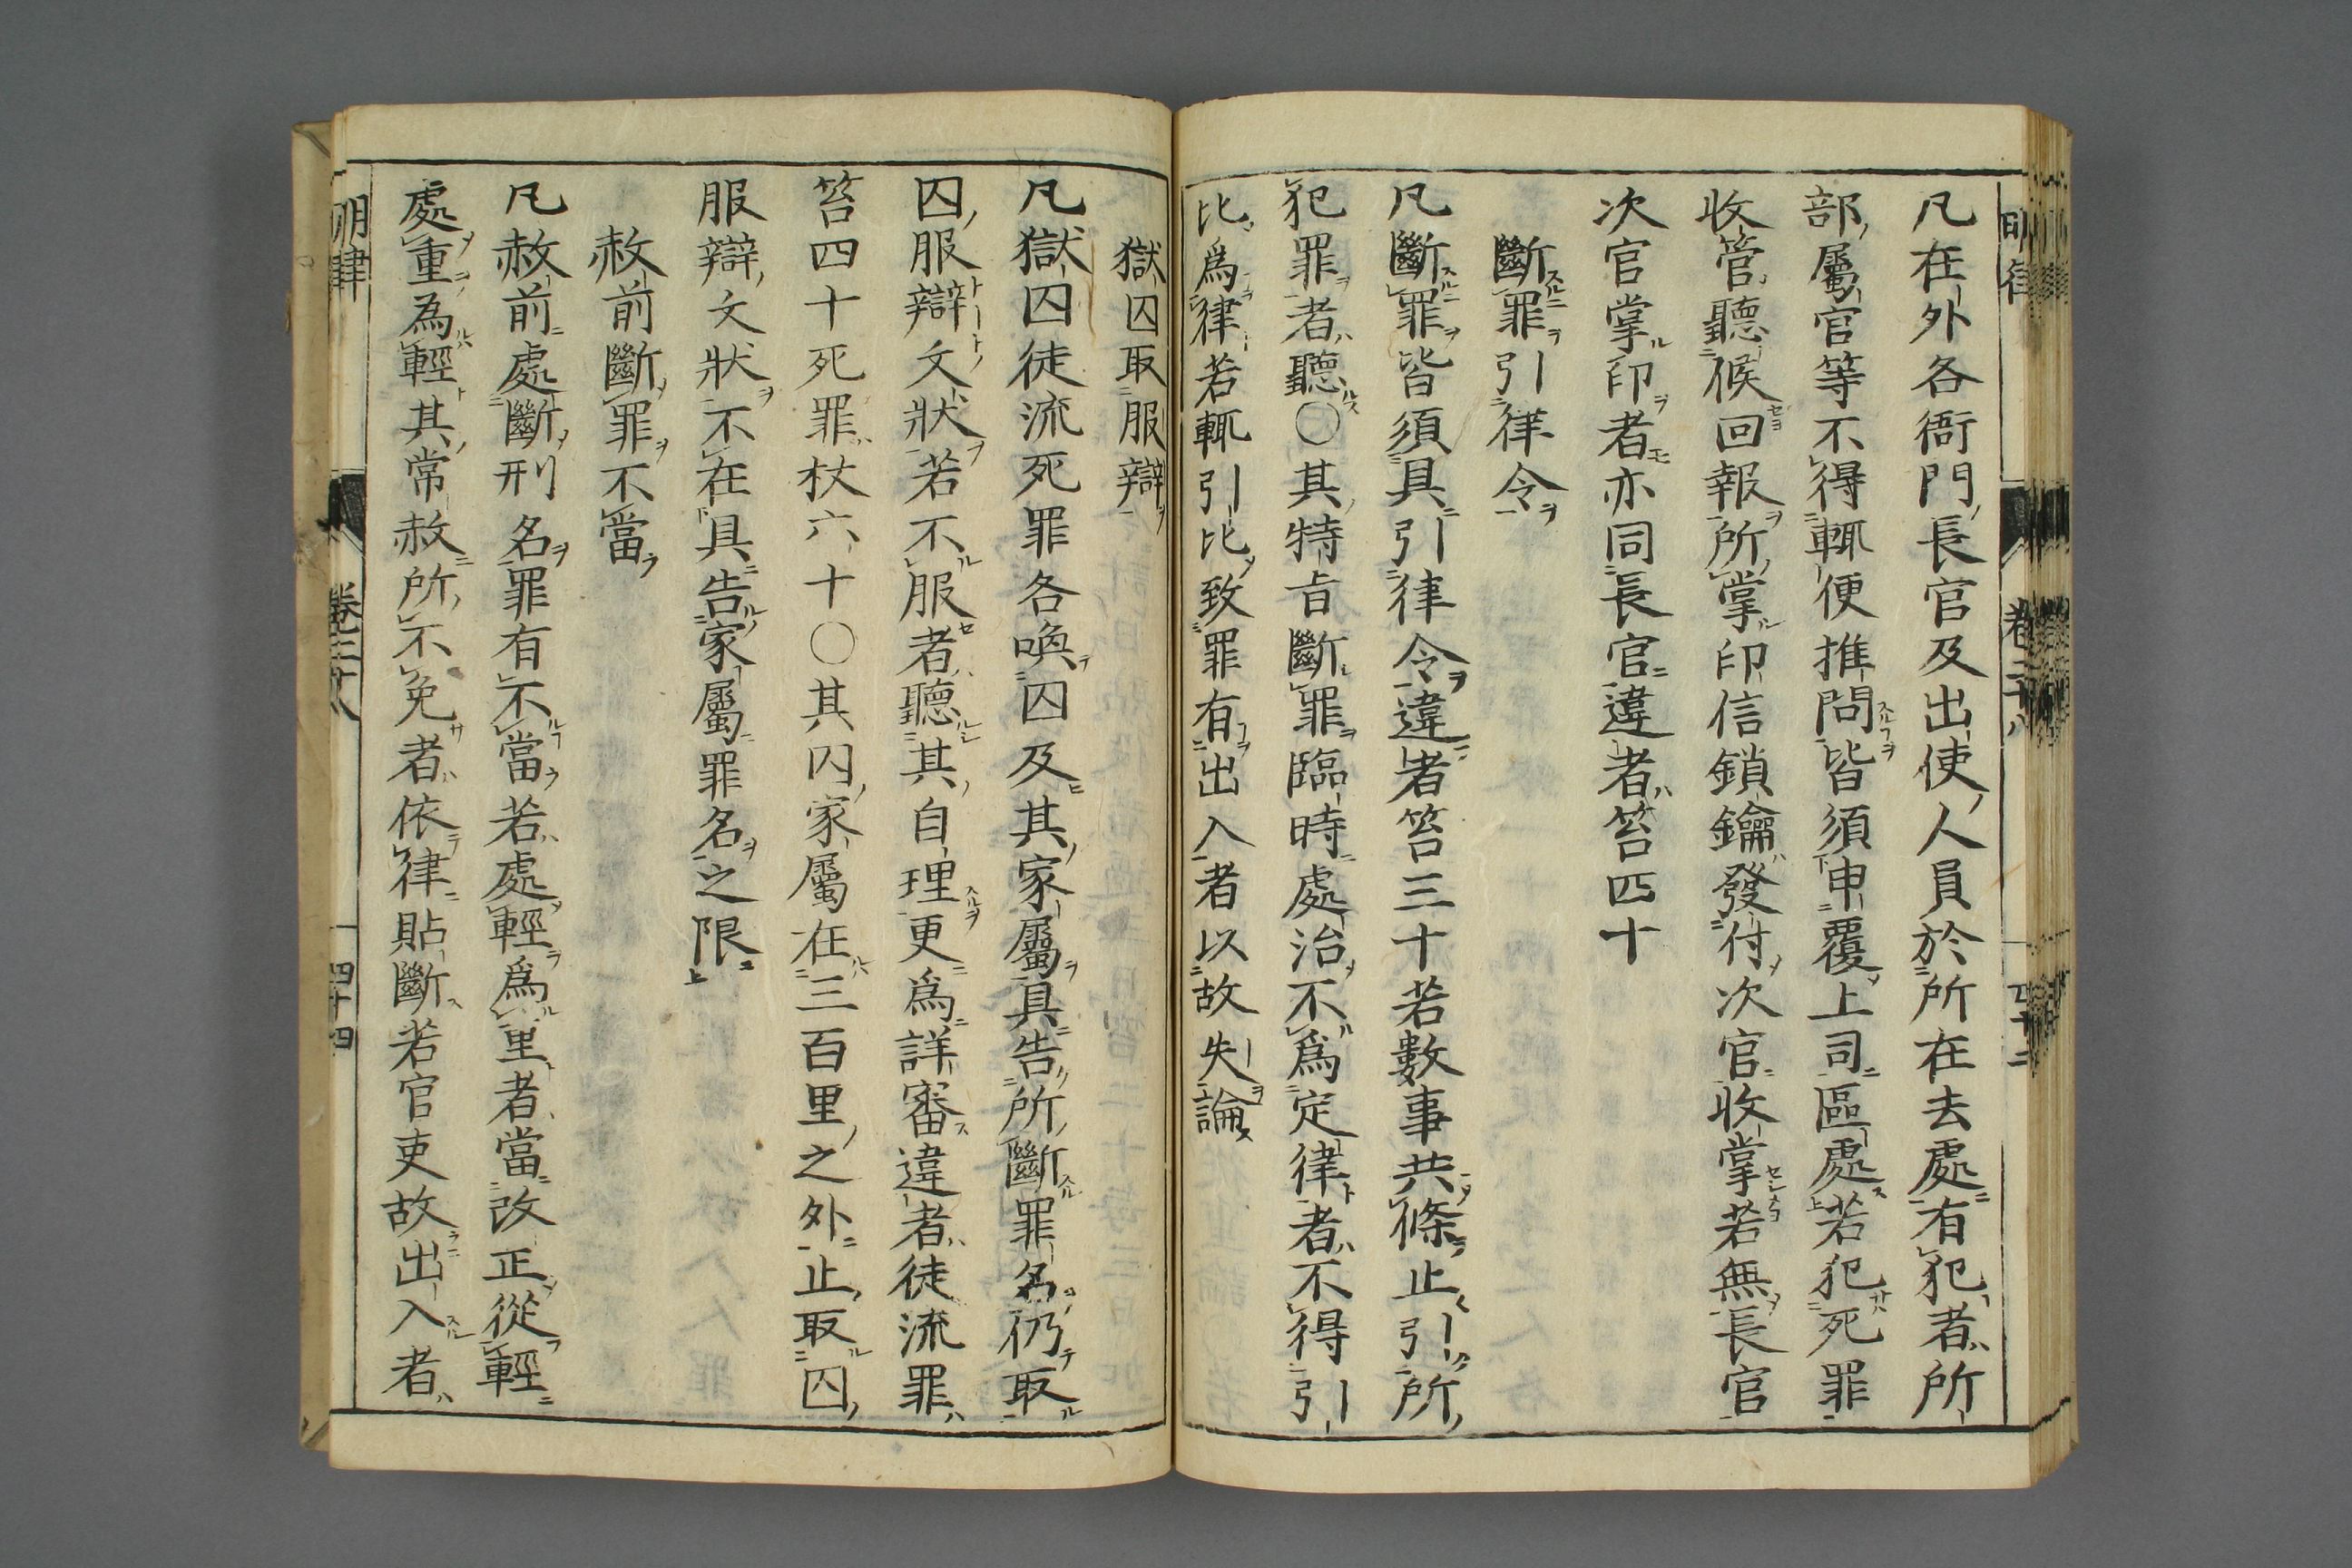 凡在外各衙門長官及出使人員於所在去處有犯者所
部屬官等不得輒便推問皆須申覆上司區處若犯死罪
收管聽候回報所掌印信鎖鑰發付次官收掌若無長官
次官掌印者亦同長官違者笞四十
斷罪引律令
凡斷罪皆須具引律令違者笞三十若數事共條止引所
犯罪者聽〇其特旨斷罪臨時處治不爲定律者不得引
比爲律若輒引比致罪有出入者以故失論
獄囚取服辯
凡獄囚徒流死罪各喚囚及其家屬具告所斷罪名仍取
囚服辯文狀若不服者聽其自理更爲詳審違者徒流罪
笞四十死罪杖六十〇其囚家屬在三百里之外止取囚
服辯文狀不在具告家屬罪名之限
赦前斷罪不當
凡赦前處斷刑名罪有不當若處輕爲重者當改正從輕
處重為輕其常赦所不免者依律貼斷若官吏故出入者
明律
卷二十八
四十四